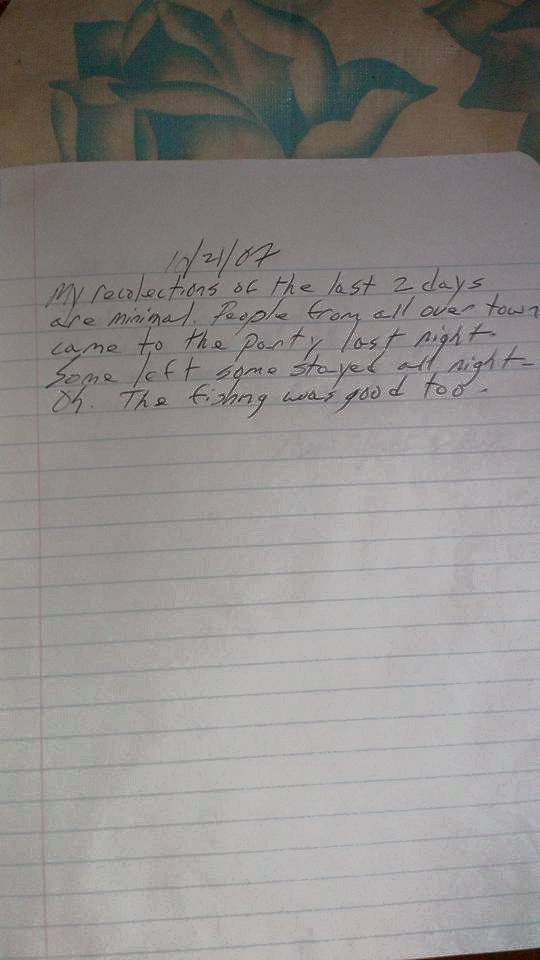 10/21/07
My recolections of the last 2 days
are minimal. People from all over town
came to the party last night.
Some left some stayed all night-
Oh. The fishng was good too.